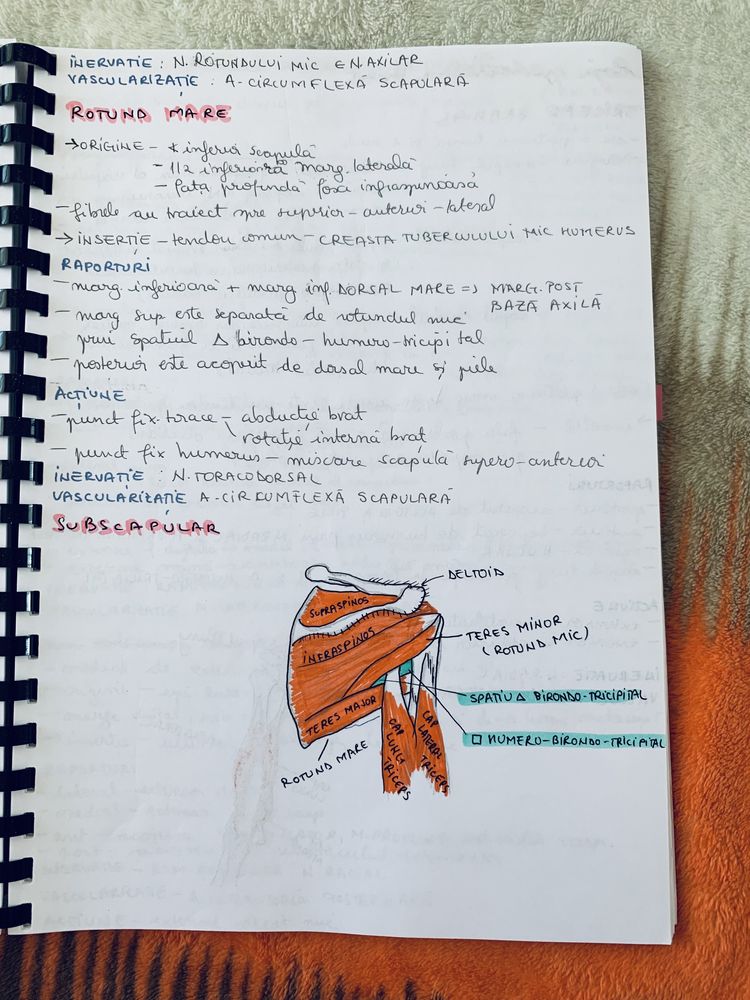 INERVATIE : N. ROTUNDULUI MIC E N. AXILAR
VASCULARIZATIE : A. CIRCUMFLEXĂ SCAPULARĂ
ROTUND MARE
→ ORIGINE – ∢ inferior scapulă
– 1/2 inferioară marg. laterală
– fața profundă fosa infraspinoasă
– fibrele au traiect spre superior – anterior – lateral
→ INSERTIE – tendon comun – CREASTA TUBERCULULUI MIC HUMERUS
RAPORTURI
– marg. inferioară + marg inf. DORSAL MARE => MARG. POST
BAZĂ AXILĂ
– marg sup este separată de rotundul mic
prin spatiul Δ birondo – humero – tricipital
– posterior este acoperit de dorsal mare și piele
ACTIUNE
– punct fix torace – abductie brat
\ rotatie internă brat
– punct fix humerus – miscare scapulă supero-anterior
INERVATIE : N. TORACODORSAL
VASCULARIZATIE A. CIRCUMFLEXĂ SCAPULARĂ
SUBSCAPULAR
DELTOID
SUPRASPINOS
INFRASPINOS
TERES MINOR
(ROTUND MIC)
SPATIU Δ BIRONDO-TRICIPITAL
TERES MAJOR
CAP LUNG TRICEPS
CAP LATERAL TRICEPS
□ HUMERO-BIRONDO-TRICIPITAL
ROTUND MARE